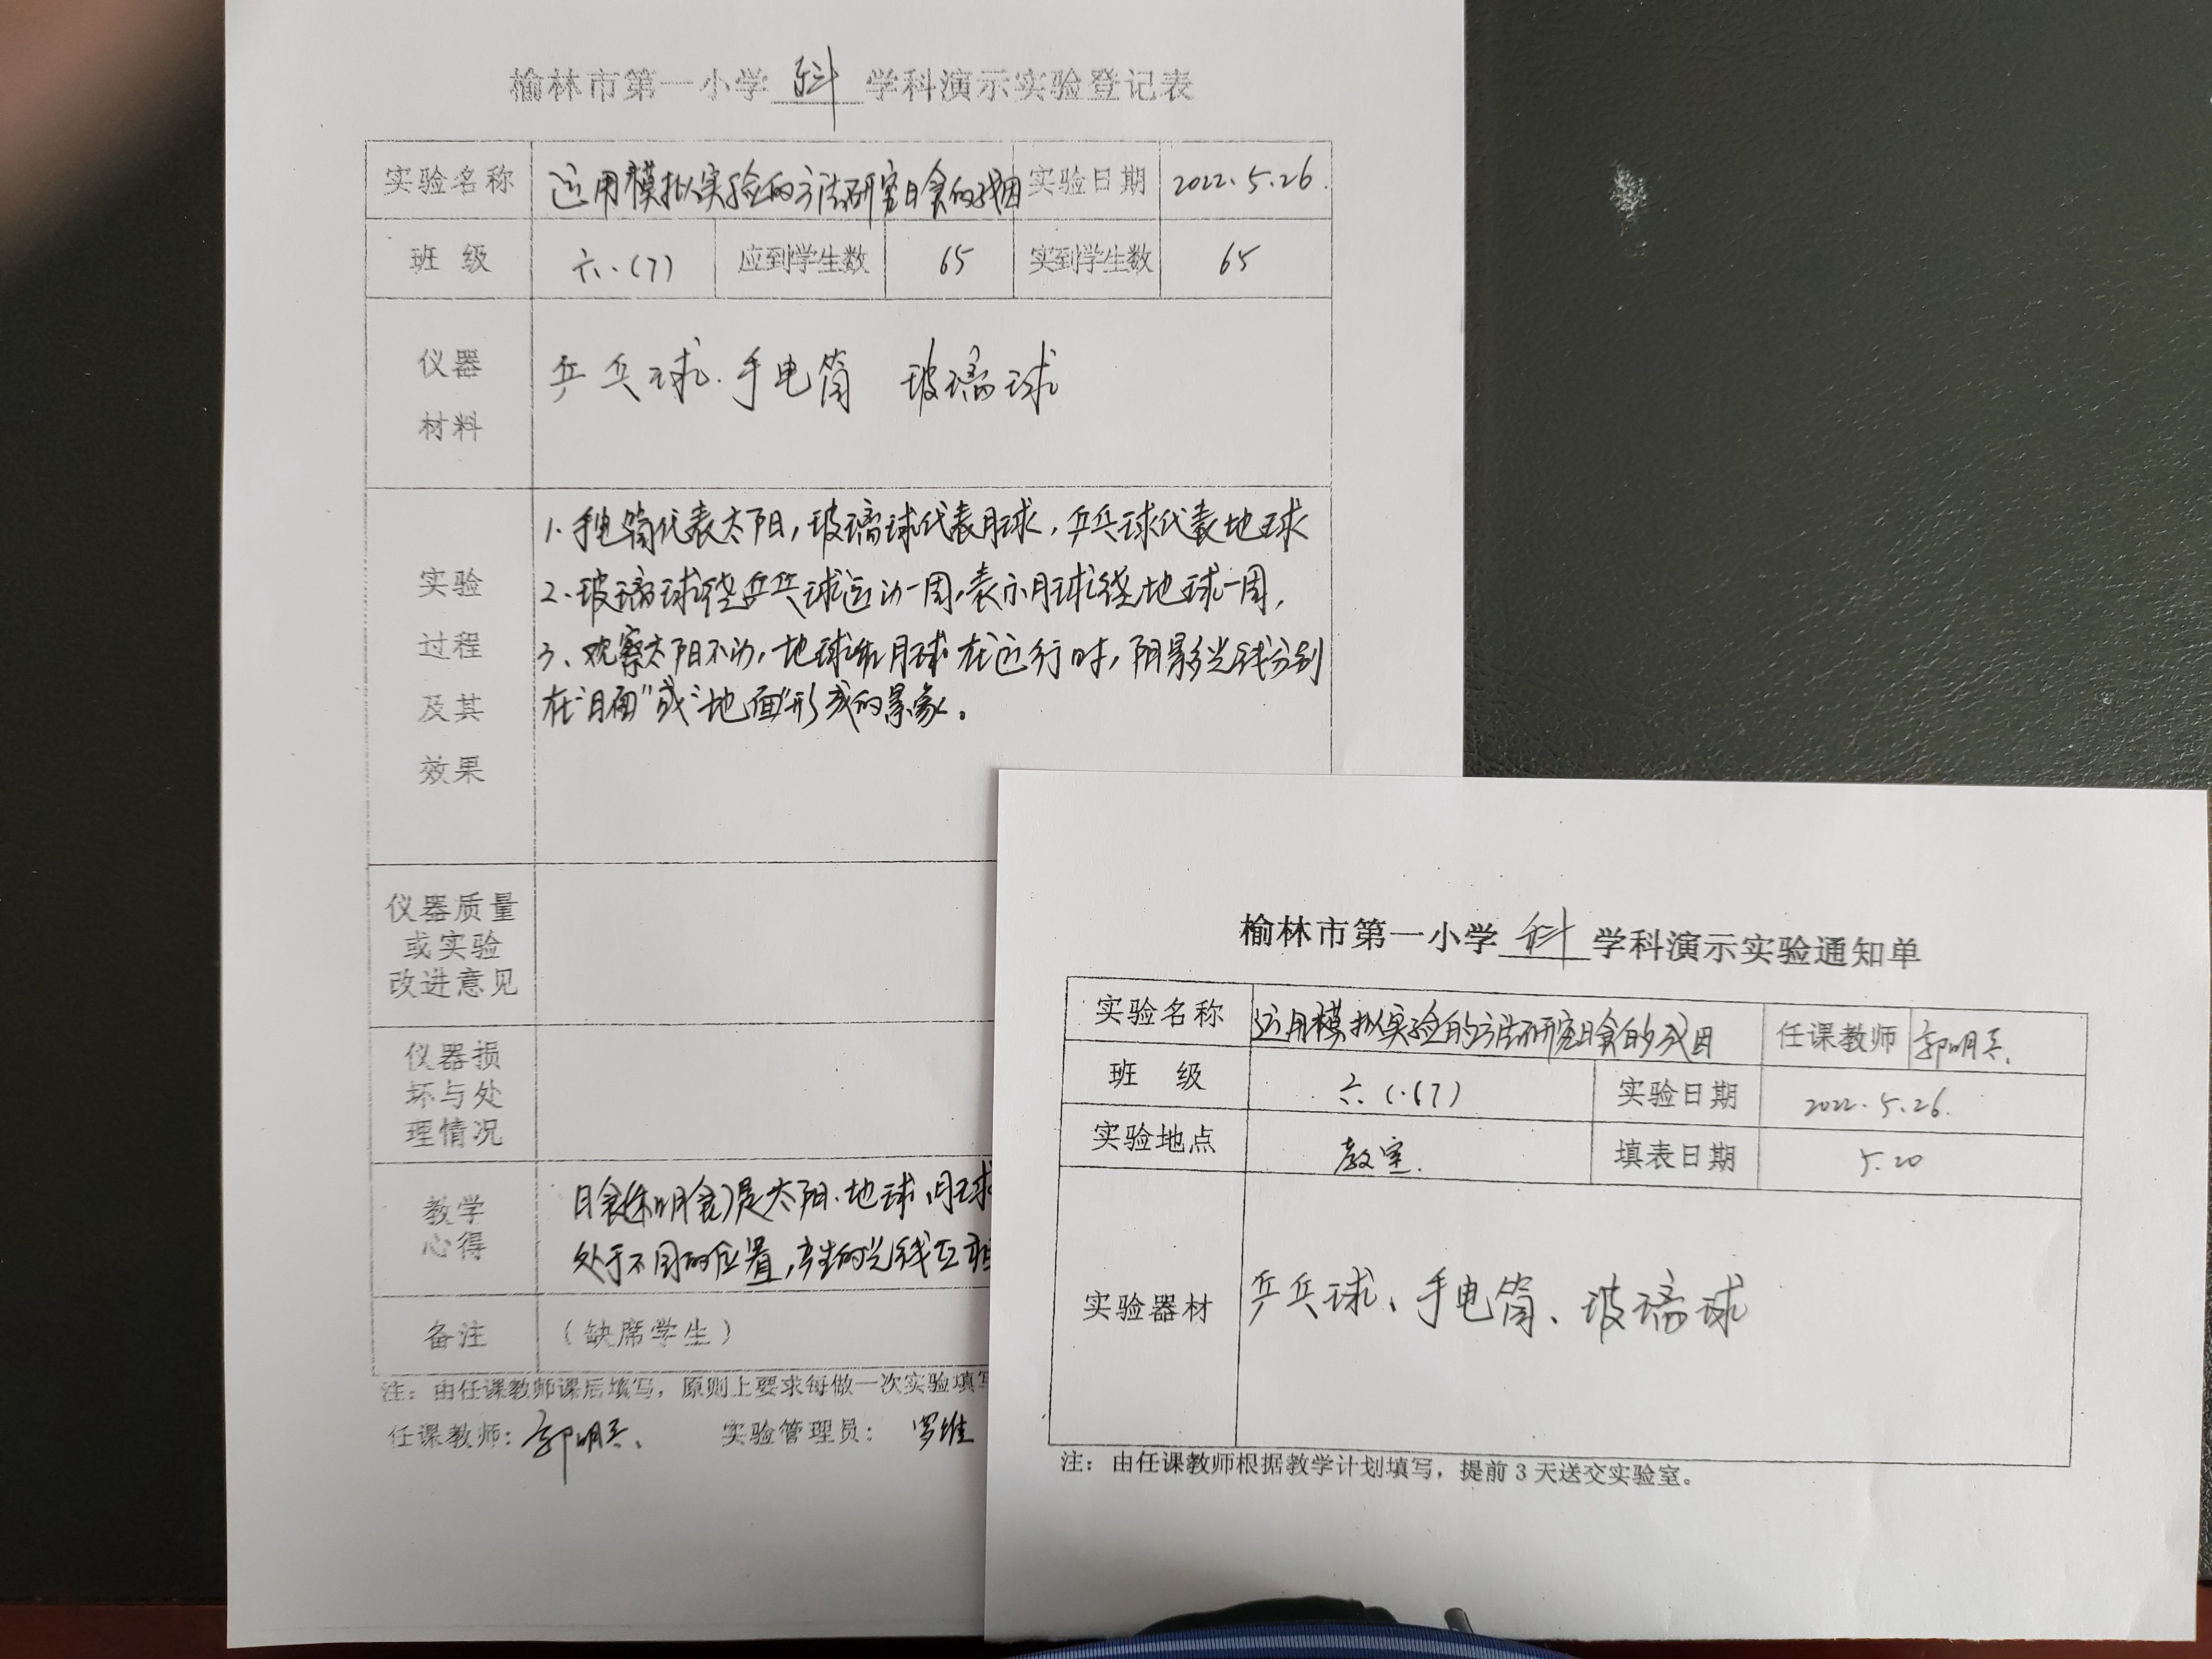 榆林市第一小学 科 学科演示实验登记表
实验名称 运用模拟实验的方法研究日食的成因 实验日期 2022.5.26.
班 级 六.(7) 应到学生数 65 实到学生数 65
仪器
材料
乒乓球.手电筒 玻璃球
实验
过程
及其
效果
1.手电筒代表太阳,玻璃球代表月球,乒乓球代表地球
2、玻璃球绕乒乓球运动一周,表示月球绕地球一周,
3、观察太阳不动,地球和月球在运行时,阴影光线分别
在"月面"或"地面"形成的景象。
仪器质量
或实验
改进意见
仪器损
坏与处
理情况
教学
心得
日食(和月食)是太阳.地球、月球
处于不同的位置,产生的光线互
备注 (缺席学生)
注:由任课教师课后填写,原则上要求每做一次实验填写
任课教师:郭明兵、 实验管理员: 罗维
榆林市第一小学 科 学科演示实验通知单
实验名称 运用模拟实验的方法研究日食的成因 任课教师 郭明兵、
班 级 六(.(7) 实验日期 2022.5.26.
实验地点 教室. 填表日期 5.20
实验器材 乒乓球、手电筒、玻璃球
注:由任课教师根据教学计划填写,提前3天送交实验室。